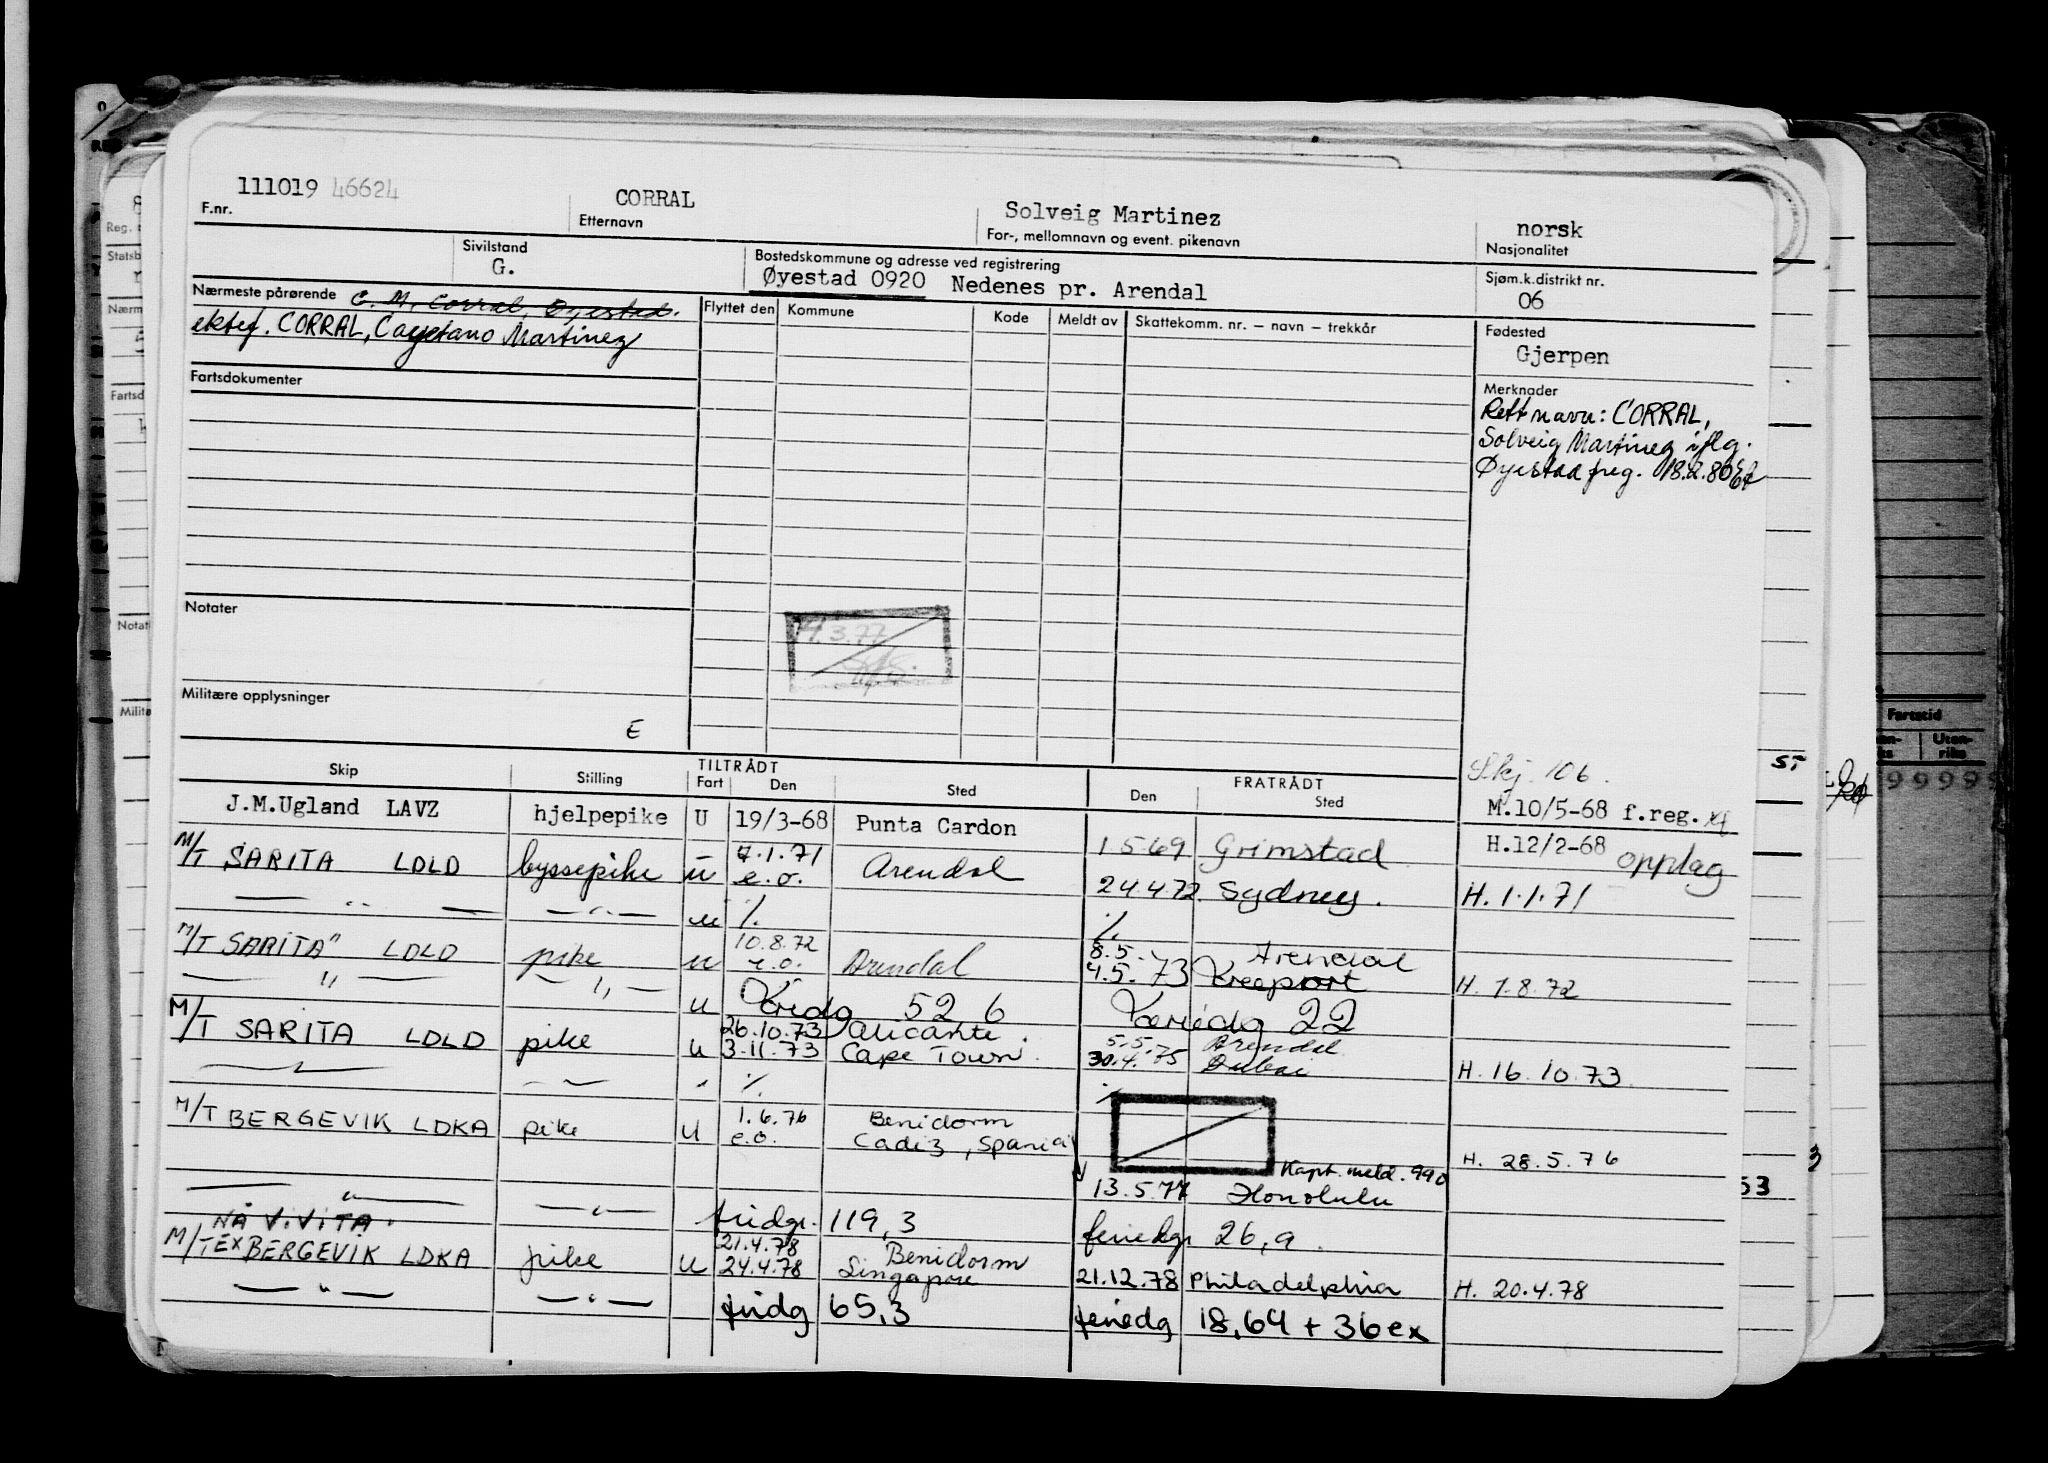 111019 46624 CORRAL Solveig Martinez norsk
F.nr. Etternavn For-, mellomnavn og event. pikenavn Nasjonalitet
Sivilstand Bostedskommune og adresse ved registrering Sjøm.k.distrikt nr.
G. Øyestad 0920 Nedenes pr. Arendal 06
Nærmeste pårørende C. M. Corral, Øyestad. Flyttet den Kommune Kode Meldt av Skattekomm. nr. – navn – trekkår Fødested
ektef. CORRAL, Cayetano Martinez Gjerpen
Fartsdokumenter Merknader
Rett navn: CORRAL,
Solveig Martinez iflg.
Øyestad freg. 18.2.80
Notater
19.3.77
Militære opplysninger
E
Skj. 106.
Skip Stilling TILTRÅDT FRATRÅDT
Fart Den Sted Den Sted
J.M.Ugland LAVZ hjelpepike U 19/3-68 Punta Cardon 1569 Grimstad M.10/5-68 f.reg.
H.12/2-68 opplag
M/T SARITA LDLD byssepike u 7.1.71 e.o. Arendal 24.4.72 Sydney. H. 1.1.71
— " — — " — u ٪. ٪.
M/T SARITA" LDLD pike u 10.8.72 e.o. Arendal 8.5. 4.5. 73 Arendal H. 1.8.72
— " — — " — u 52 6 22
M/T SARITA LDLD pike u 26.10.73 Alicante 5.5. Arendal
3.11.73 Cape Town. 30.4.75 Dubai H. 16.10.73
M/T BERGEVIK LDKA pike u 1.6.76 Benidorm
e.o. Cadiz, Spania H. 28.5.76
Kapt. meld. 990
— " — — " — 13.5.77 Honolulu
fridgr. 119,3 feriedgr 26,9.
NÅ VIVITA
M/T EX BERGEVIK LDKA pike u 21.4.78 Benidorm
24.4.78 Singapore 21.12.78 Philadelphia H. 20.4.78
— " — — " — fridg 65,3 feriedg 18,64 + 36 ex
Fartstid
Uten-
riks